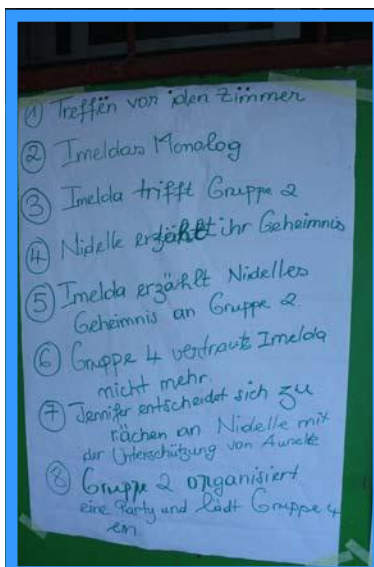 ① Treffen vor den Zimmer
② Imeldas Monolog
③ Imelda trifft Gruppe 2
④ Nidelle erzählt ihr Geheimnis
⑤ Imelda erzählt Nidelles
Geheimnis an Gruppe 2.
⑥ Gruppe 4 vertraut Imelda
nicht mehr.
⑦ Jennifer entscheidet sich zu
rächen an Nidelle mit
der Unterschützung von
⑧ Gruppe 2 organisiert
eine Party und lädt Gruppe 4
ein